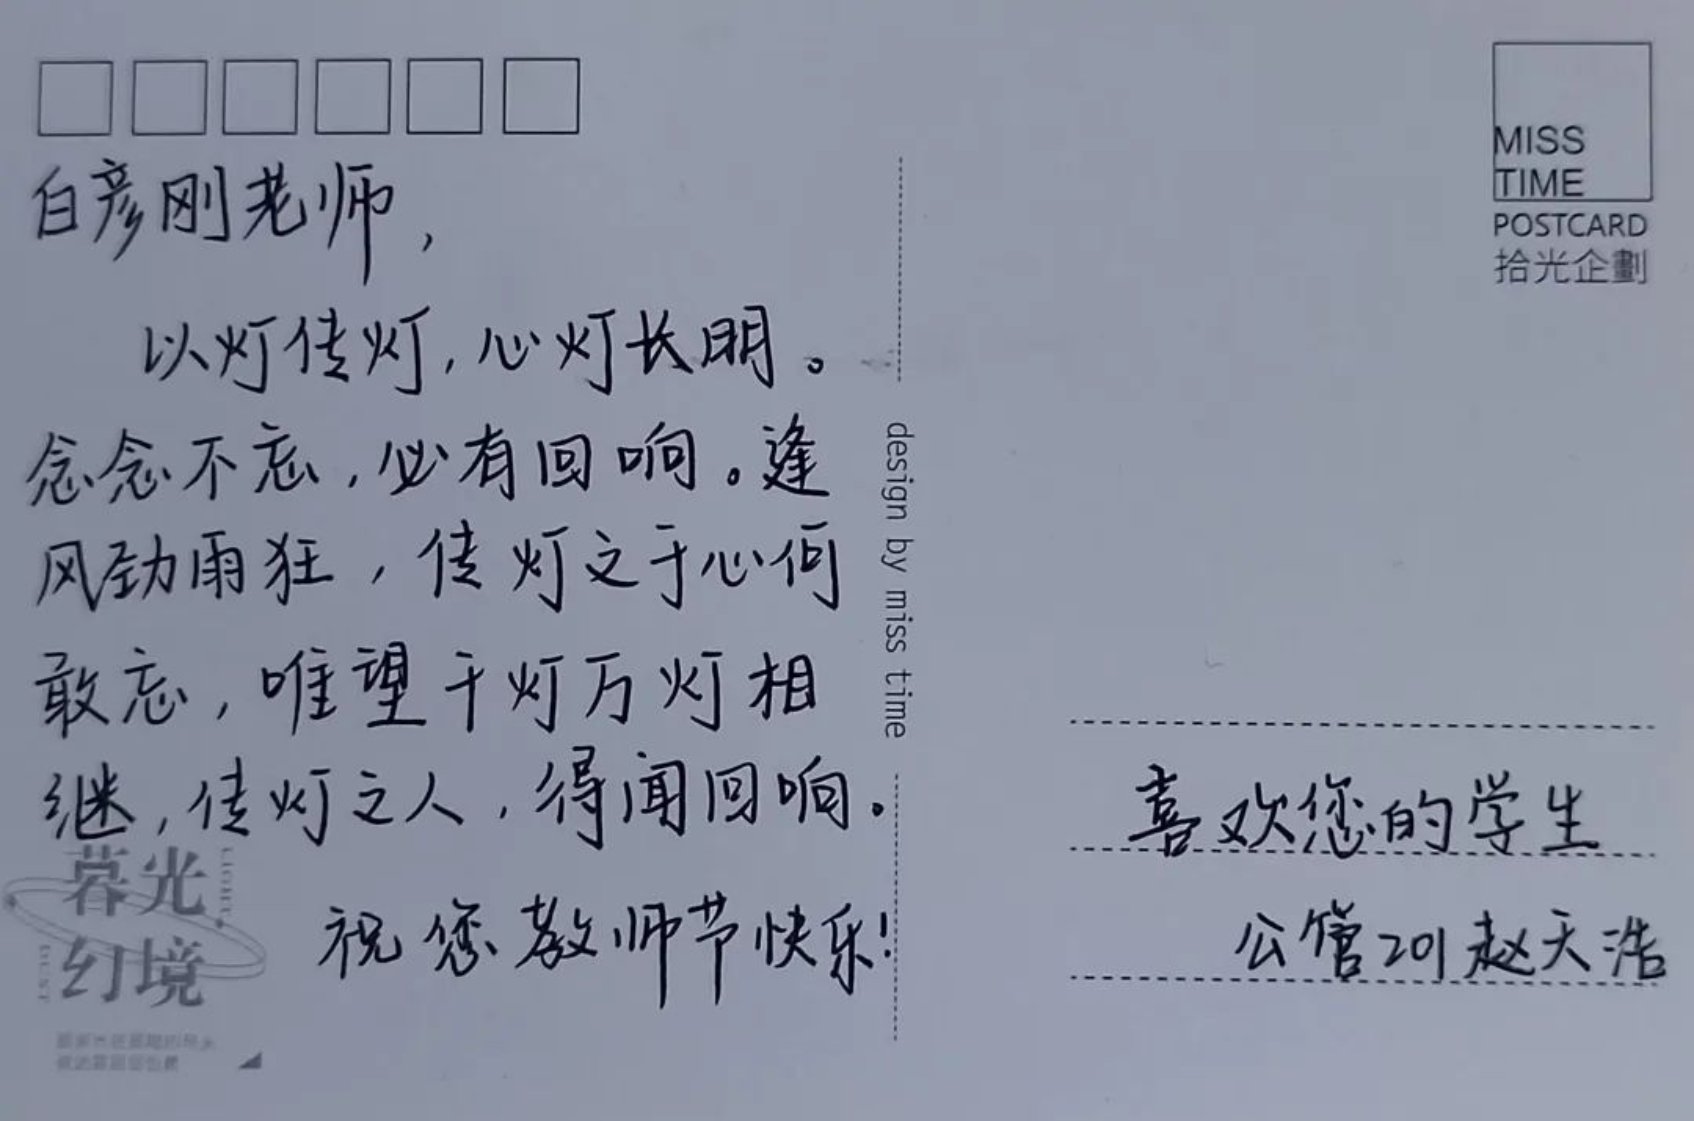 白彦刚老师，
以灯传灯，心灯长明。
念念不忘，必有回响。逢
风劲雨狂，传灯之于心何
敢忘，唯望千灯万灯相
继，传灯之人，得闻回响。
祝您教师节快乐！
暮光
幻境
design by miss time
MISS
TIME
POSTCARD
拾光企劃
喜欢您的学生
公管201赵天浩